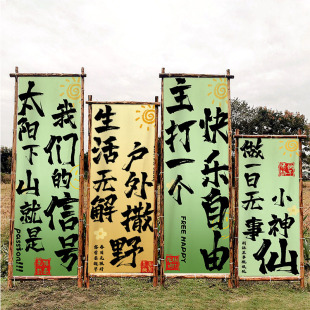 太阳下山就是
我们的信号
passson!!!
生活无解
户外撒野
主打一个
快乐自由
FREE HAPPY
做一日无事
小神仙